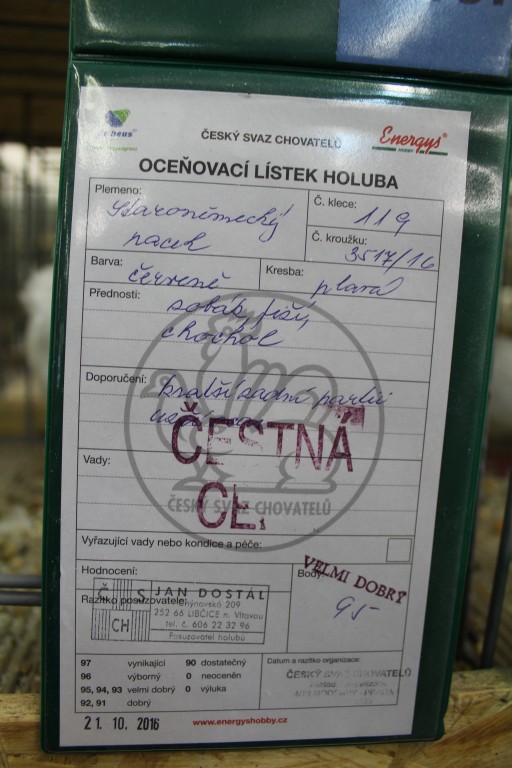 ČESKÝ SVAZ CHOVATELŮ
Energys®
HOBBY
OCEŇOVACÍ LÍSTEK HOLUBA
Plemeno: Staroněmecký
racek
Č. klece: 119
Č. kroužku: 3517/16
Barva: červeně
Kresba: plavá
Přednosti: zobák, fiží,
chochol
Doporučení: kratší zadní partii
ČESTNÁ
CE.
ČESKÝ SVAZ CHOVATELŮ
Vady:
Vyřazující vady nebo kondice a péče:
Hodnocení:
Body:
VELMI DOBRÝ
95
Razítko posuzovatele:
Č S
CH
JAN DOSTÁL
209
252 66 LIBČICE n. Vltavou
tel. č. 606 22 32 96
Posuzovatel holubů
97 vynikající 90 dostatečný
96 výborný 0 neoceněn
95, 94, 93 velmi dobrý 0 výluka
92, 91 dobrý
Datum a razítko organizace:
ČESKÝ SVAZ CHOVATELŮ
21. 10. 2016
www.energyshobby.cz